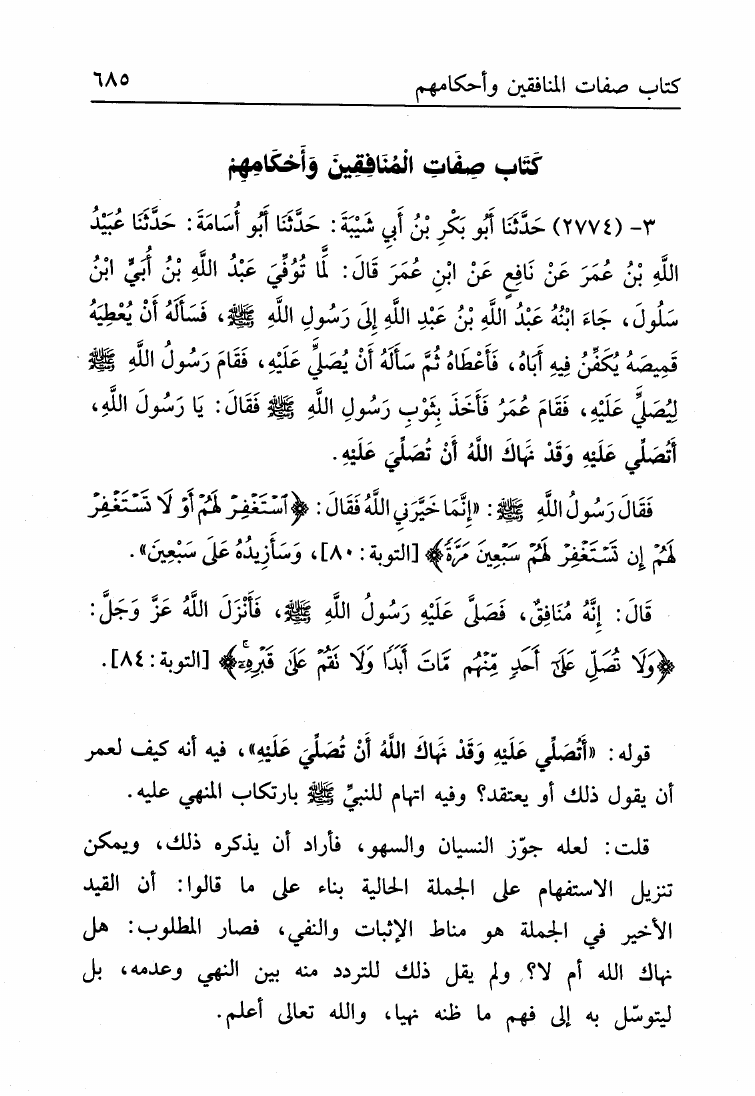 كتاب صفات المنافقين وأحكامهم ٦٨٥
كَتَاب صِفَاتِ الْمُنَافِقِينَ وَأَحْكَامِهِمْ
٣- (٢٧٧٤) حَدَّثَنَا أَبُو بَكْرِ بْنُ أَبِي شَيْبَةَ: حَدَّثَنَا أَبُو أُسَامَةَ: حَدَّثَنَا عُبَيْدُ
اللَّهِ بْنُ عُمَرَ عَنْ نَافِعٍ عَنْ ابْنِ عُمَرَ قَالَ: لَمَّا تُوُفِّيَ عَبْدُ اللَّهِ بْنُ أُبَيٍّ ابْنُ
سَلُولَ، جَاءَ ابْنُهُ عَبْدُ اللَّهِ بْنُ عَبْدِ اللَّهِ إِلَى رَسُولِ اللَّهِ ﷺ، فَسَأَلَهُ أَنْ يُعْطِيَهُ
قَمِيصَهُ يُكَفِّنُ فِيهِ أَبَاهُ، فَأَعْطَاهُ ثُمَّ سَأَلَهُ أَنْ يُصَلِّيَ عَلَيْهِ، فَقَامَ رَسُولُ اللَّهِ ﷺ
لِيُصَلِّيَ عَلَيْهِ، فَقَامَ عُمَرُ فَأَخَذَ بِثَوْبِ رَسُولِ اللَّهِ ﷺ فَقَالَ: يَا رَسُولَ اللَّهِ،
أَتُصَلِّي عَلَيْهِ وَقَدْ نَهَاكَ اللَّهُ أَنْ تُصَلِّيَ عَلَيْهِ.
فَقَالَ رَسُولُ اللَّهِ ﷺ: «إِنَّمَا خَيَّرَنِي اللَّهُ فَقَالَ: ﴿ٱسْتَغْفِرْ لَهُمْ أَوْ لَا تَسْتَغْفِرْ
لَهُمْ إِن تَسْتَغْفِرْ لَهُمْ سَبْعِينَ مَرَّةً﴾ [التوبة: ٨٠]، وَسَأَزِيدُهُ عَلَى سَبْعِينَ».
قَالَ: إِنَّهُ مُنَافِقٌ، فَصَلَّى عَلَيْهِ رَسُولُ اللَّهِ ﷺ، فَأَنْزَلَ اللَّهُ عَزَّ وَجَلَّ:
﴿وَلَا تُصَلِّ عَلَىٰٓ أَحَدٍ مِّنْهُم مَّاتَ أَبَدًا وَلَا نَقُمْ عَلَىٰ قَبْرِهِۦٓ﴾ [التوبة: ٨٤].
قوله: «أَتُصَلِّي عَلَيْهِ وَقَدْ نَهَاكَ اللَّهُ أَنْ تُصَلِّيَ عَلَيْهِ»، فيه أنه كيف لعمر
أن يقول ذلك أو يعتقد؟ وفيه اتهام للنبيِّ ﷺ بارتكاب المنهي عليه.
قلت: لعله جوّز النسيان والسهو، فأراد أن يذكره ذلك، ويمكن
تنزيل الاستفهام على الجملة الحالية بناء على ما قالوا: أن القيد
الأخير في الجملة هو مناط الإثبات والنفي، فصار المطلوب: هل
نهاك الله أم لا؟ ولم يقل ذلك للتردد منه بين النهي وعدمه، بل
ليتوسّل به إلى فهم ما ظنه نهيا، والله تعالى أعلم.